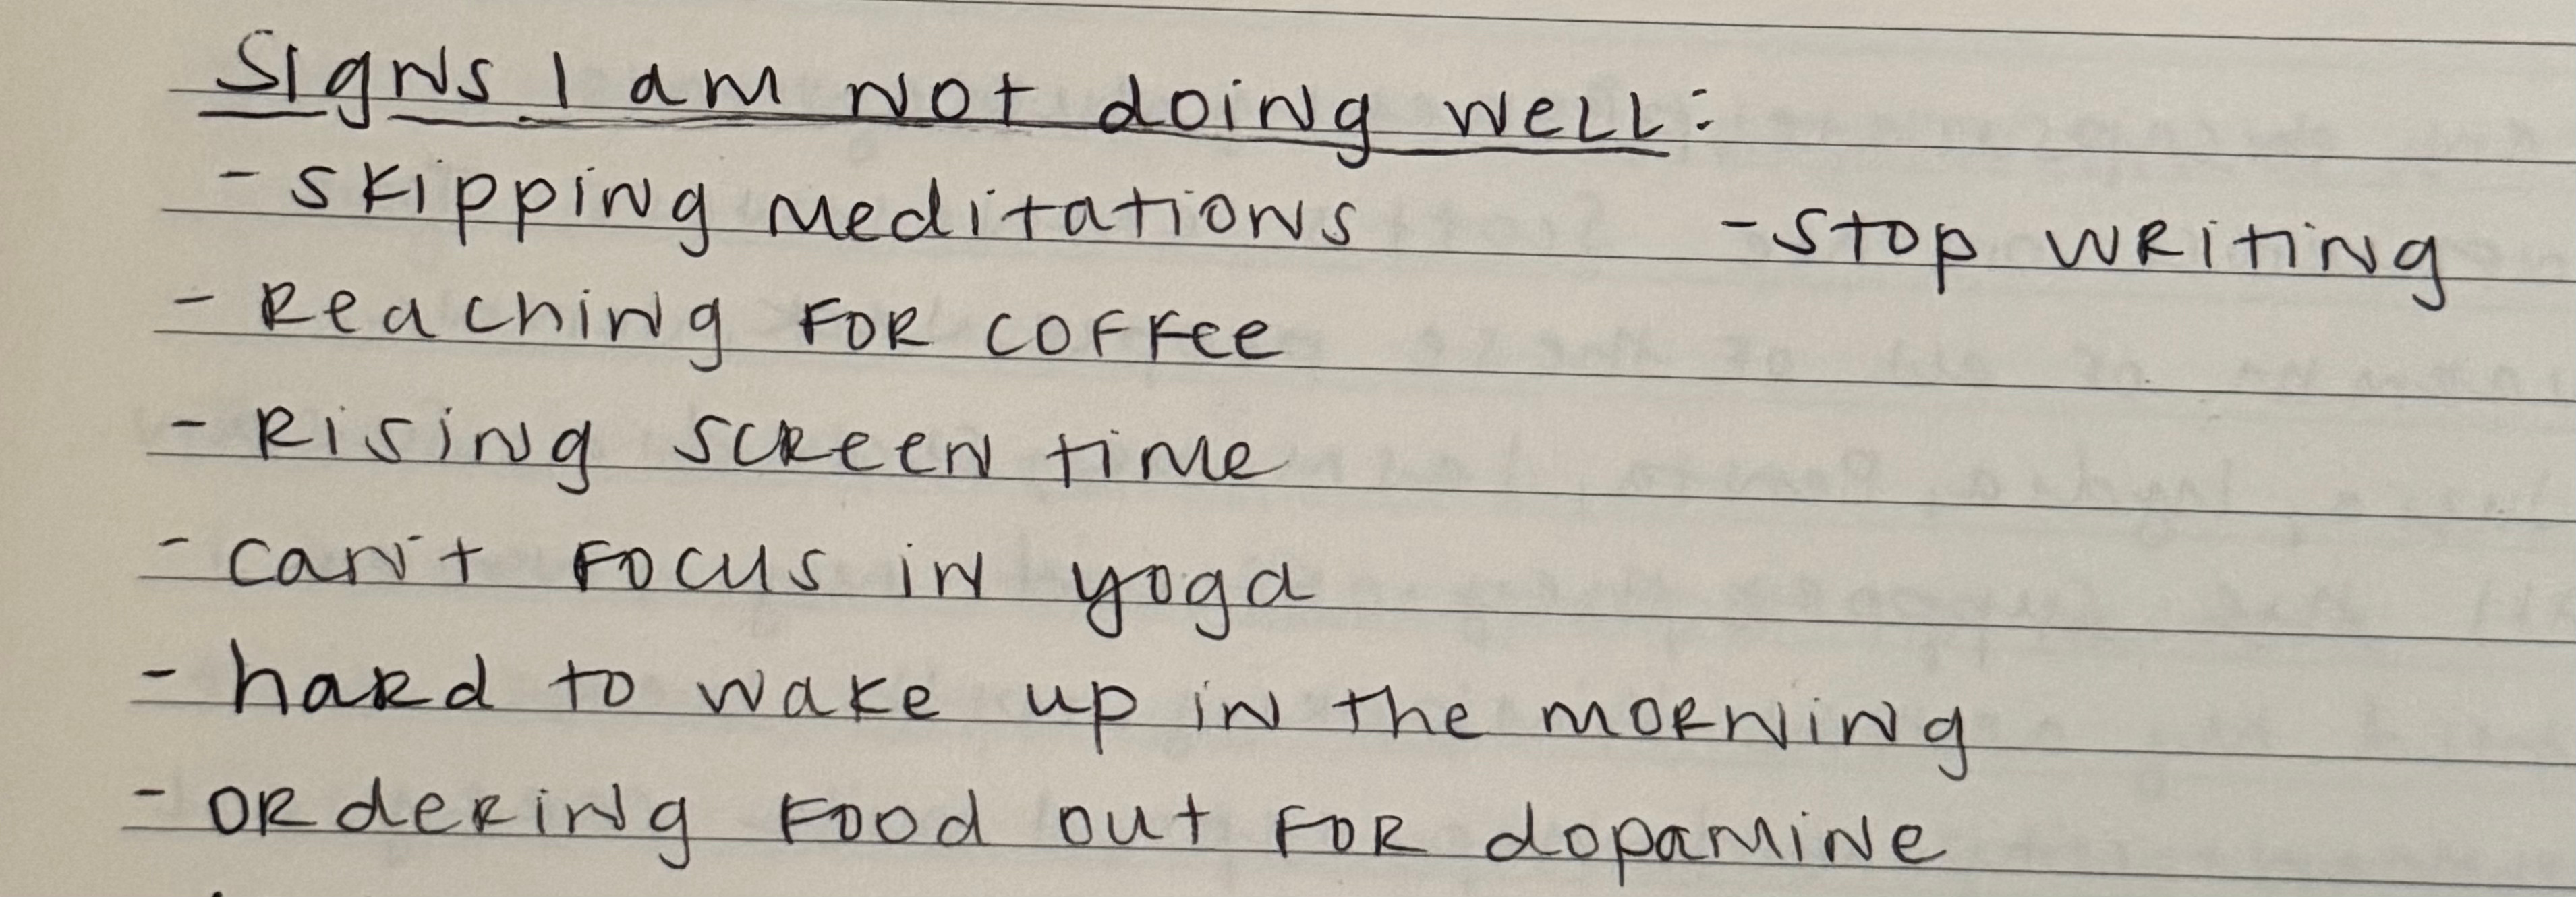 Signs I am not doing well:
- skipping meditations
- stop writing
- Reaching for coffee
- Rising screen time
- can't focus in yoga
- hard to wake up in the morning
- ordering food out for dopamine